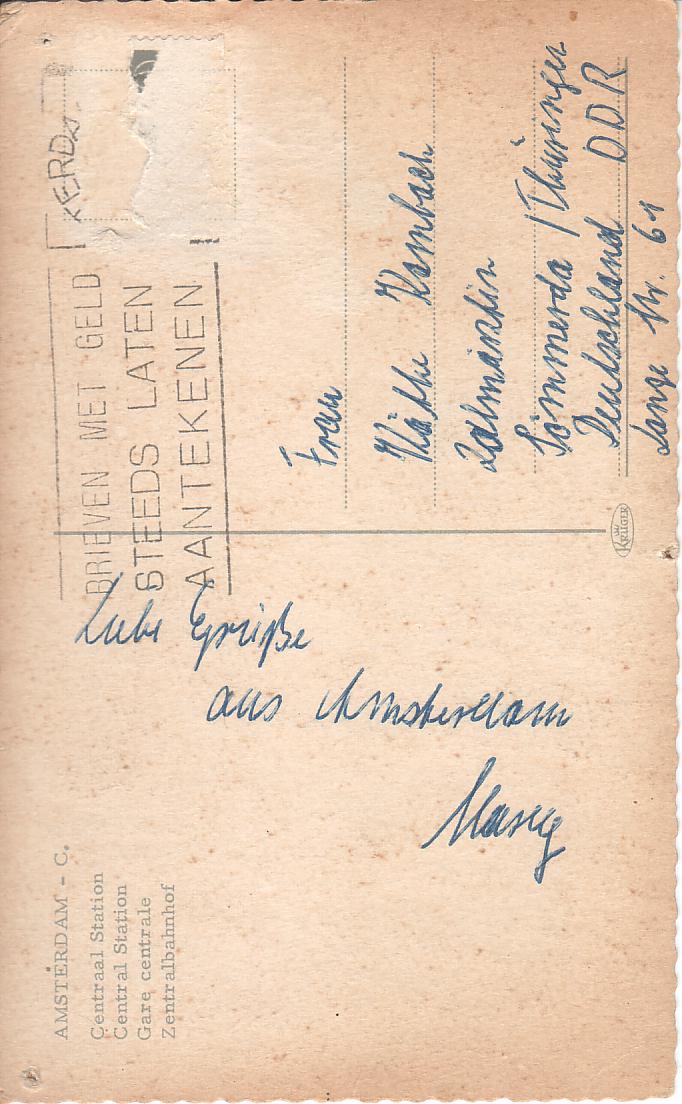 AMSTERDAM - C.
Centraal Station
Central Station
Gare centrale
Zentralbahnhof
Liebe Grüße
aus Amsterdam
BRIEVEN MET GELD
STEEDS LATEN
AANTEKENEN
Frau
Käthe Kombach
Zahnärztin
Sömmerda / Thüringen
Deutschland DDR
Lange Str. 61
KRÜGER